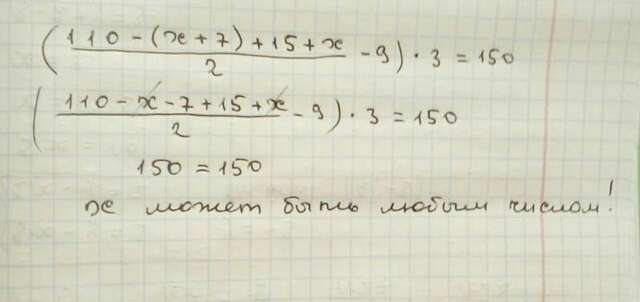 (110 - (x + 7) + 15 + x / 2 - 9) · 3 = 150
(110 - x - 7 + 15 + x / 2 - 9) · 3 = 150
150 = 150
x может быть любым числом!